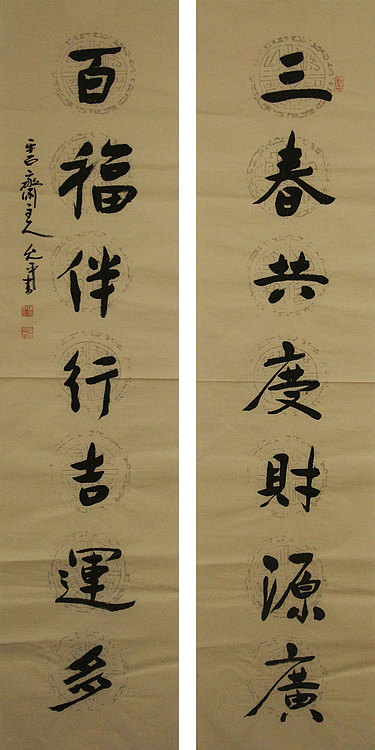 三春共慶財源廣
百福伴行吉運多
齋主人